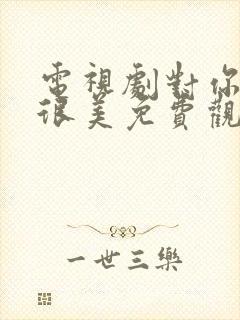 電視劇對你
很美免費觀
一世三樂